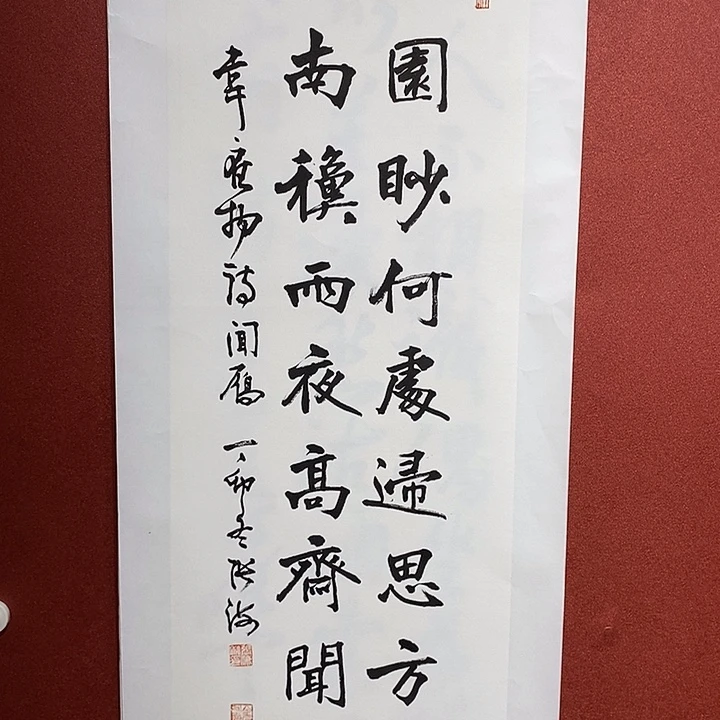 園眇何處歸思方
南穐雨夜高齋聞
韋應物詩聞鴈 丁卯冬張海